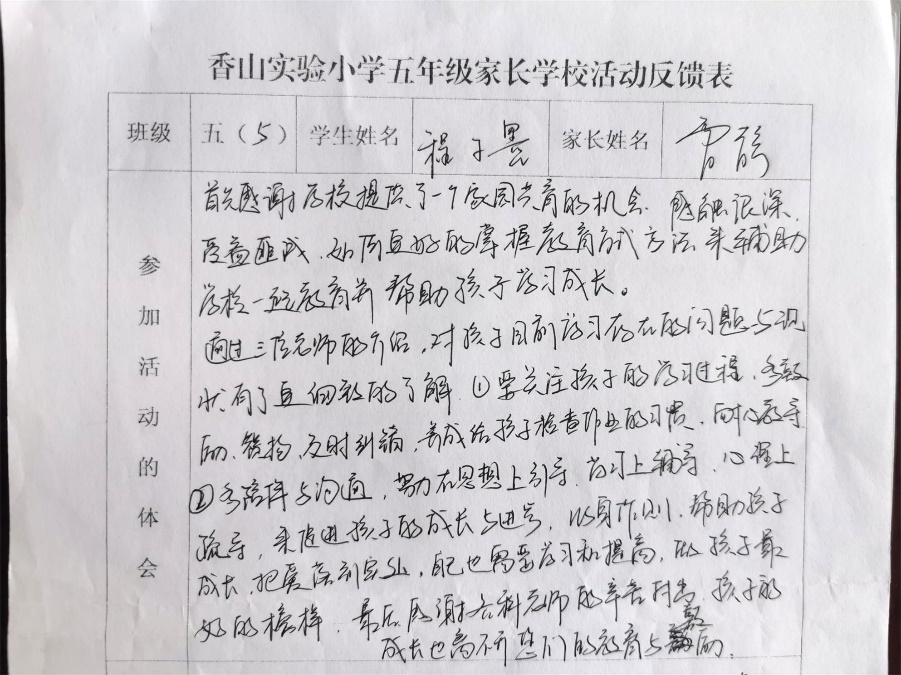 香山实验小学五年级家长学校活动反馈表
班级 五（5） 学生姓名 程子墨 家长姓名
参加活动的体会
首先感谢学校提供了一个家园共育的机会、感触很深、
受益匪浅、如何更好的掌握教育方式方法来辅助
学校一起教育并帮助孩子学习成长。
通过三位老师的介绍，对孩子目前学习存在的问题与现
状有了更细致的了解.①要关注孩子的学习过程、多鼓
励、鼓掌、及时纠错、养成给孩子检查作业的习惯、耐心教导
②多陪伴与沟通，努力在思想上引导、学习上辅导、心理上
疏导，来促进孩子的成长与进步，以身作则、帮助孩子
成长、把爱落到实处，自己也需要学习和提高，做孩子最
好的榜样、最后感谢各科老师的辛苦付出、孩子的
成长也离不开您们的教育与鼓励.